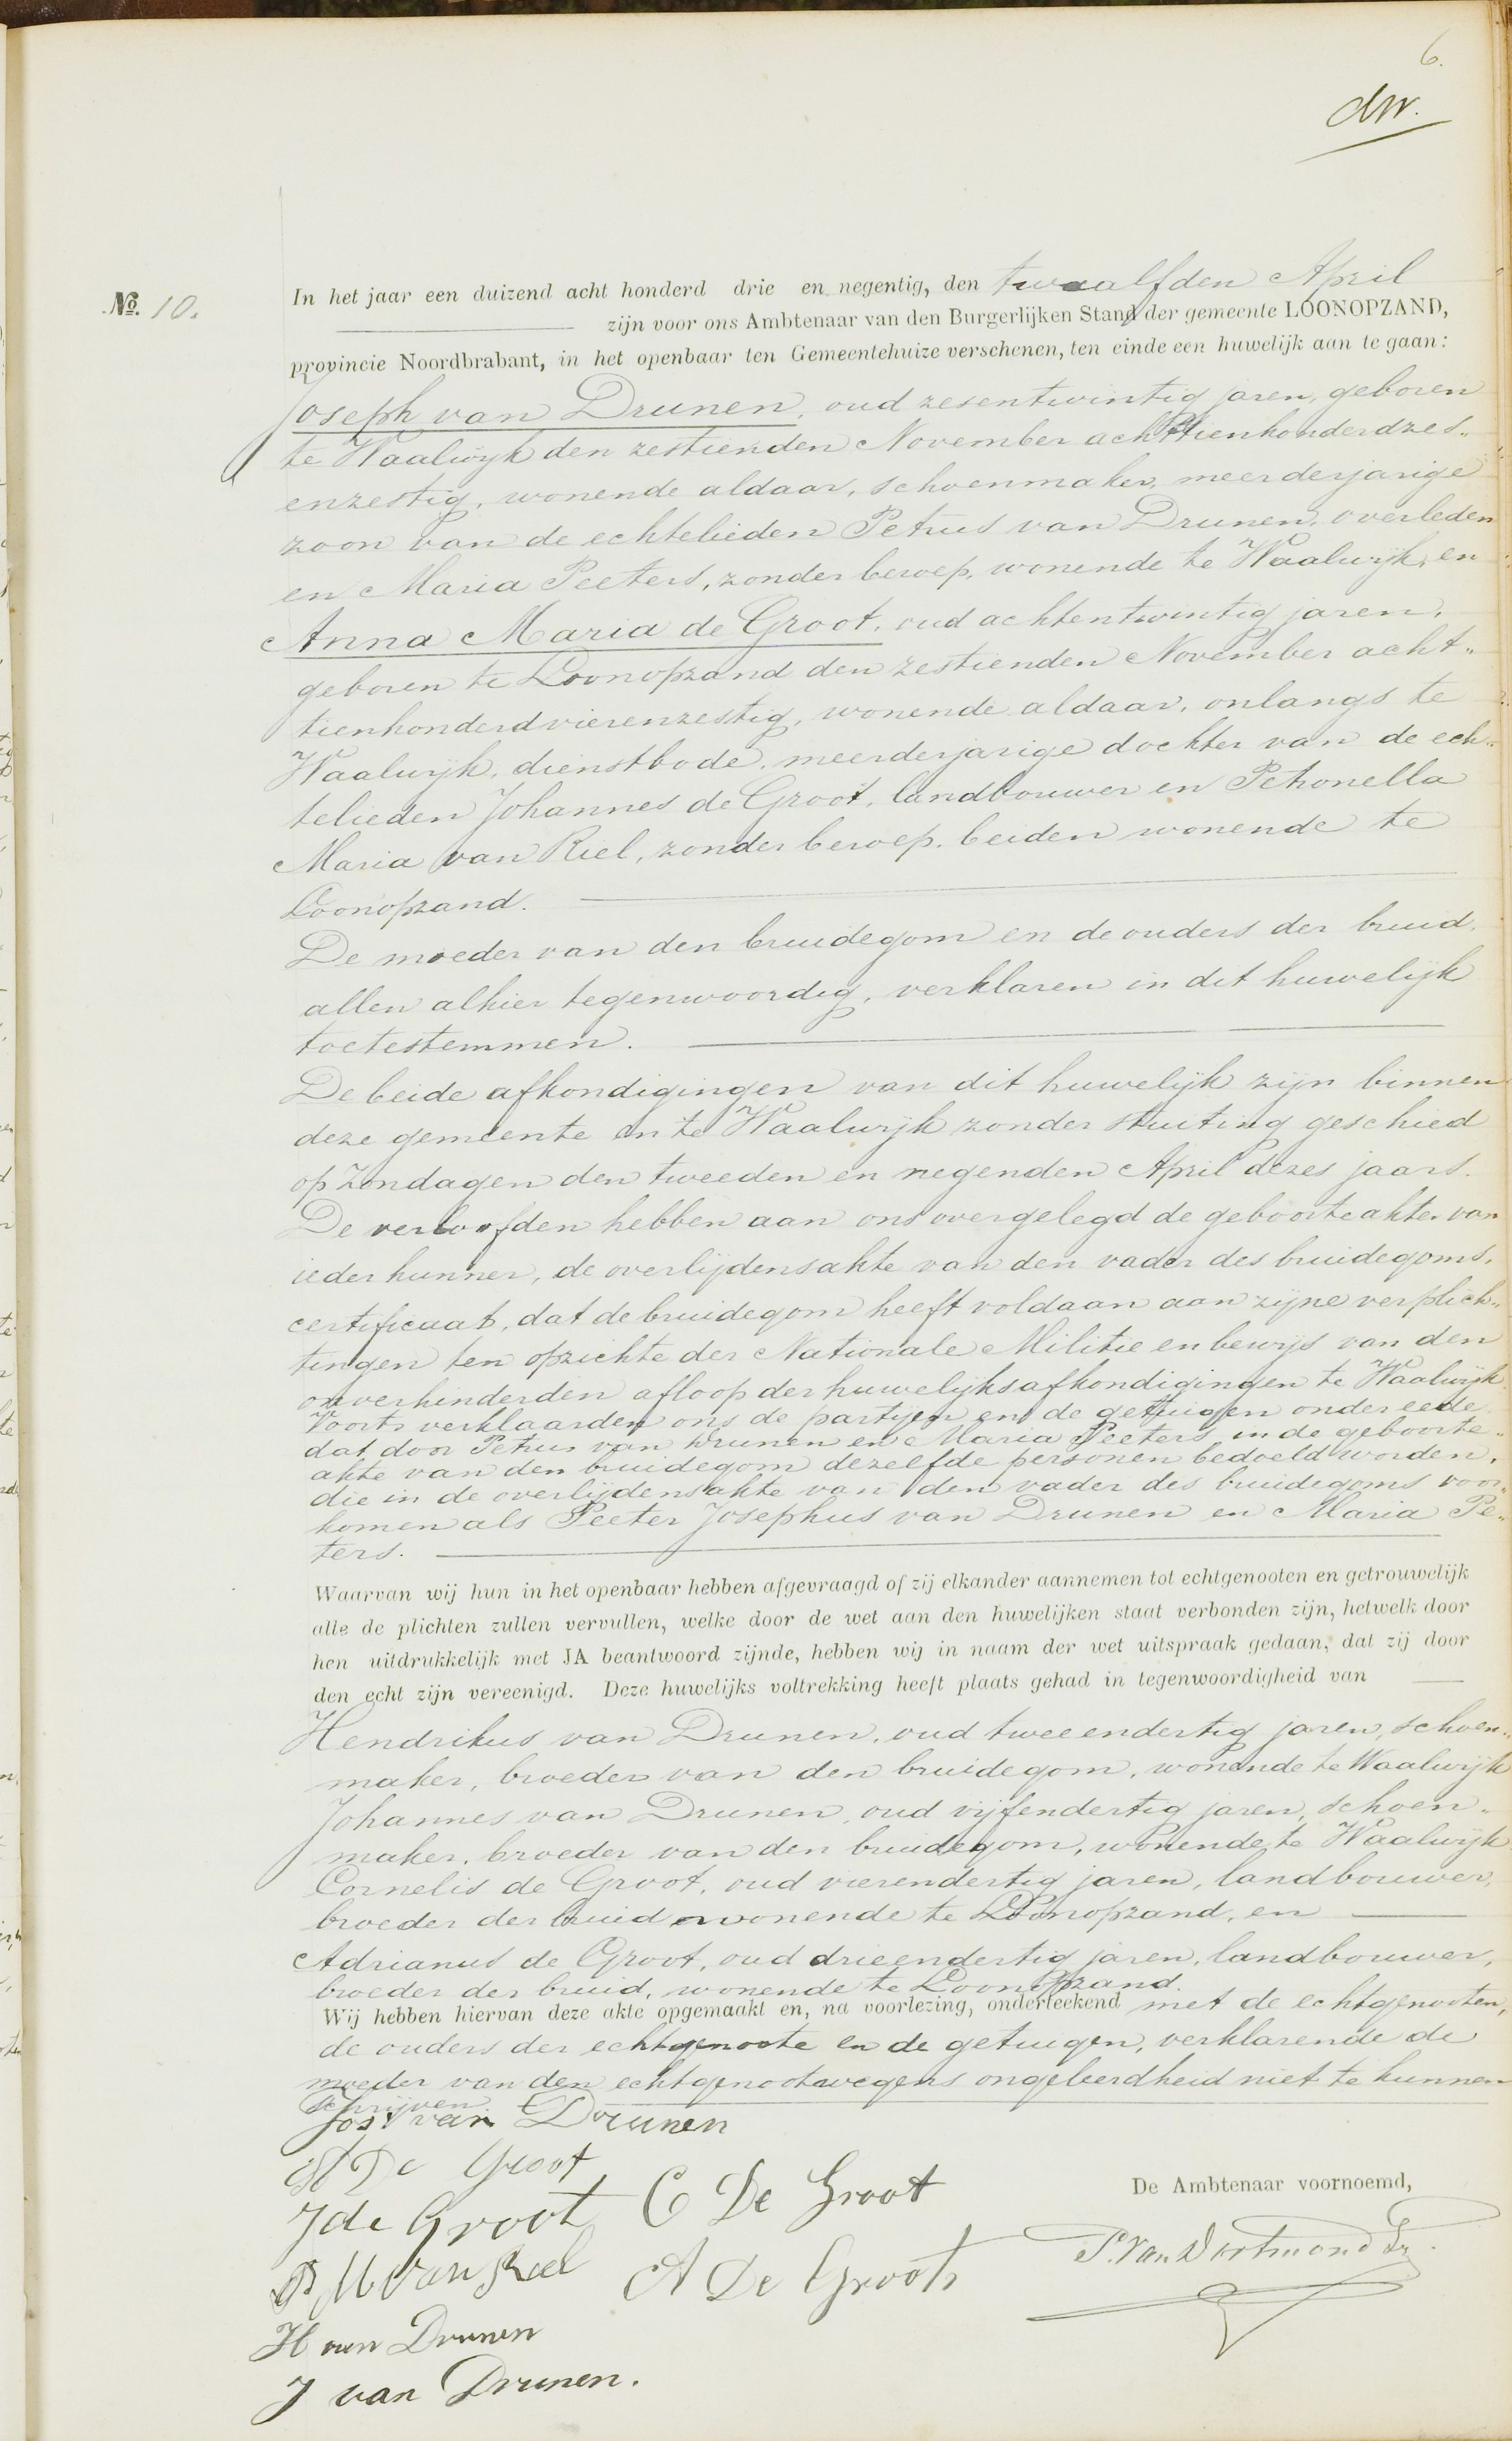 6.
dW.
No. 10.
In het jaar een duizend acht honderd drie en negentig, den twaalfden April
zijn voor ons Ambtenaar van den Burgerlijken Stand der gemeente LOONOPZAND,
provincie Noordbrabant, in het openbaar ten Gemeentehuize verschenen, ten einde een huwelijk aan te gaan:
Joseph van Drunen, oud zesentwintig jaren, geboren
te Waalwijk den zestienden November achttienhonderdzes„
enzestig, wonende aldaar, schoenmaker, meerderjarige
zoon van de echtelieden Petrus van Drunen, overleden
en Maria Peeters, zonder beroep, wonende te Waalwijk, en
Anna Maria de Groot, oud achtentwintig jaren,
geboren te Loonopzand den zestienden November acht„
tienhonderdvierenzestig, wonende aldaar, onlangs te
Waalwijk, dienstbode, meerderjarige dochter van de ech„
telieden Johannes de Groot, landbouwer en Petronella
Maria van Riel, zonder beroep, beiden wonende te
Loonopzand.
De moeder van den bruidegom en de ouders der bruid,
allen alhier tegenwoordig, verklaren in dit huwelijk
toetestemmen.
De beide afkondigingen van dit huwelijk zijn binnen
deze gemeente en te Waalwijk zonder stuiting geschied
op Zondagen den tweeden en negenden April dezes jaars.
De verloofden hebben aan ons overgelegd de geboorteakte van
ieder hunner, de overlijdensakte van den vader des bruidegoms,
certificaat, dat de bruidegom heeft voldaan aan zijne verplich„
tingen ten opzichte der Nationale Militie en bewijs van den
onverhinderden afloop der huwelijksafkondigingen te Waalwijk
Voorts verklaarden ons de partijen en de getuigen onder eede
dat door Petrus van Drunen en Maria Peeters in de geboorte„
akte van den bruidegom dezelfde personen bedoeld worden,
die in de overlijdensakte van den vader des bruidegoms voor„
komen als Peeter Josephus van Drunen en Maria Pe„
ters.
Waarvan wij hun in het openbaar hebben afgevraagd of zij elkander aannemen tot echtgenooten en getrouwelijk
alle de plichten zullen vervullen, welke door de wet aan den huwelijken staat verbonden zijn, hetwelk door
hen uitdrukkelijk met JA beantwoord zijnde, hebben wij in naam der wet uitspraak gedaan, dat zij door
den echt zijn vereenigd. Deze huwelijks voltrekking heeft plaats gehad in tegenwoordigheid van
Hendrikus van Drunen, oud tweeendertig jaren, schoen„
maker, broeder van den bruidegom, wonende te Waalwijk
Johannes van Drunen, oud vijfendertig jaren, schoen„
maker, broeder van den bruidegom, wonende te Waalwijk
Cornelis de Groot, oud vierendertig jaren, landbouwer,
broeder der bruid wonende te Loonopzand, en
Adrianus de Groot, oud drieendertig jaren, landbouwer,
broeder der bruid, wonende te Loonopzand.
Wij hebben hiervan deze akte opgemaakt en, na voorlezing, onderteekend met de echtgenooten,
de ouders der echtgenoote en de getuigen, verklarende de
moeder van den echtgenoot wegens ongeleerdheid niet te kunnen
schrijven.
Jos van Drunen
De Groot
J de Groot
C De Groot
De Ambtenaar voornoemd,
P M van Riel
A De Groot
P. Van Dortmond
H van Drunen
J van Drunen.